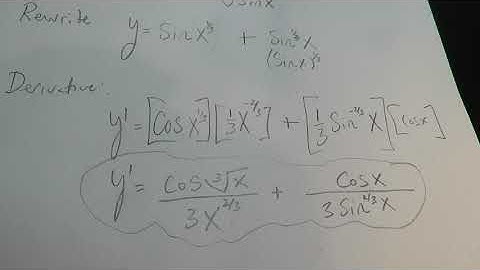 ∛sinx
Rewrite y = Sin x^{1/3} + Sin^{1/3}x
(Sinx)^{1/3}
Derivative:
y' = [Cos x^{1/3}][1/3 x^{-2/3}] + [1/3 Sin^{-2/3} x][Cosx]
y' = Cos ∛x / 3x^{2/3} + Cosx / 3 Sin^{2/3} x